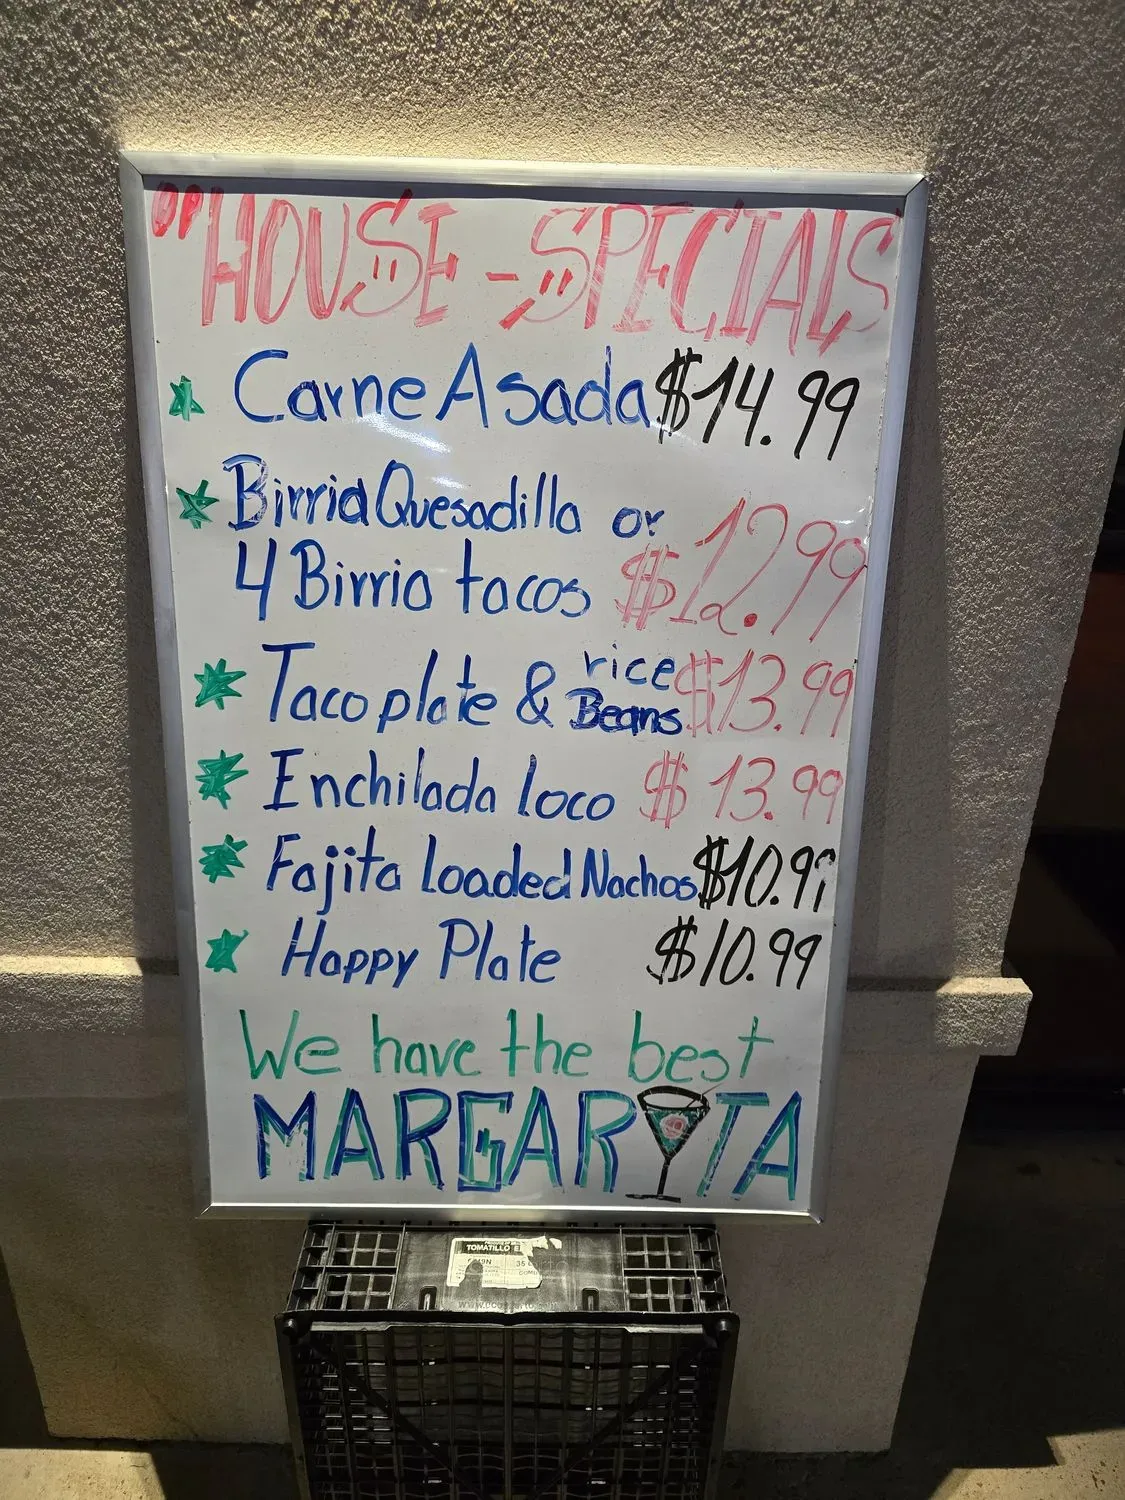 "HOUSE - SPECIALS
Carne Asada $14.99
Birria Quesadilla or
4 Birria tacos $12.99
Taco plate & rice Beans $13.99
Enchilada loco $13.99
Fajita Loaded Nachos $10.99
Happy Plate $10.99
We have the best
MARGARITA
TOMATILLO
35